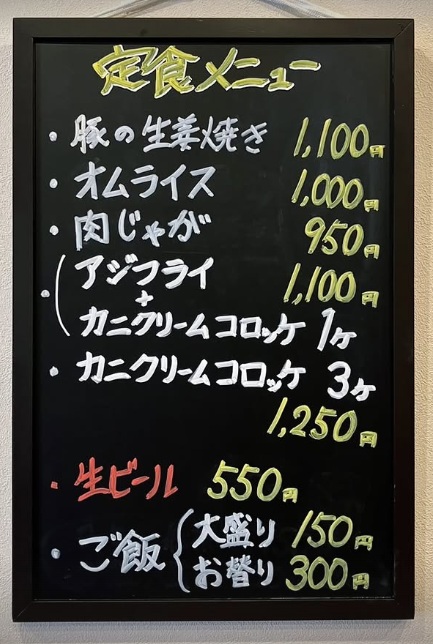 定食メニュー
・豚の生姜焼き 1,100円
・オムライス 1,000円
・肉じゃが 950円
・アジフライ 1,100円
+
カニクリームコロッケ 1ヶ
・カニクリームコロッケ 3ヶ
1,250円
・生ビール 550円
・ご飯 大盛り 150円
お替り 300円